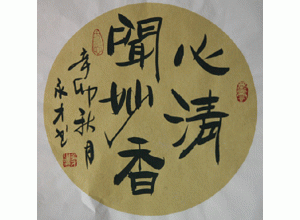 心清
聞妙香
辛卯秋月
永才书